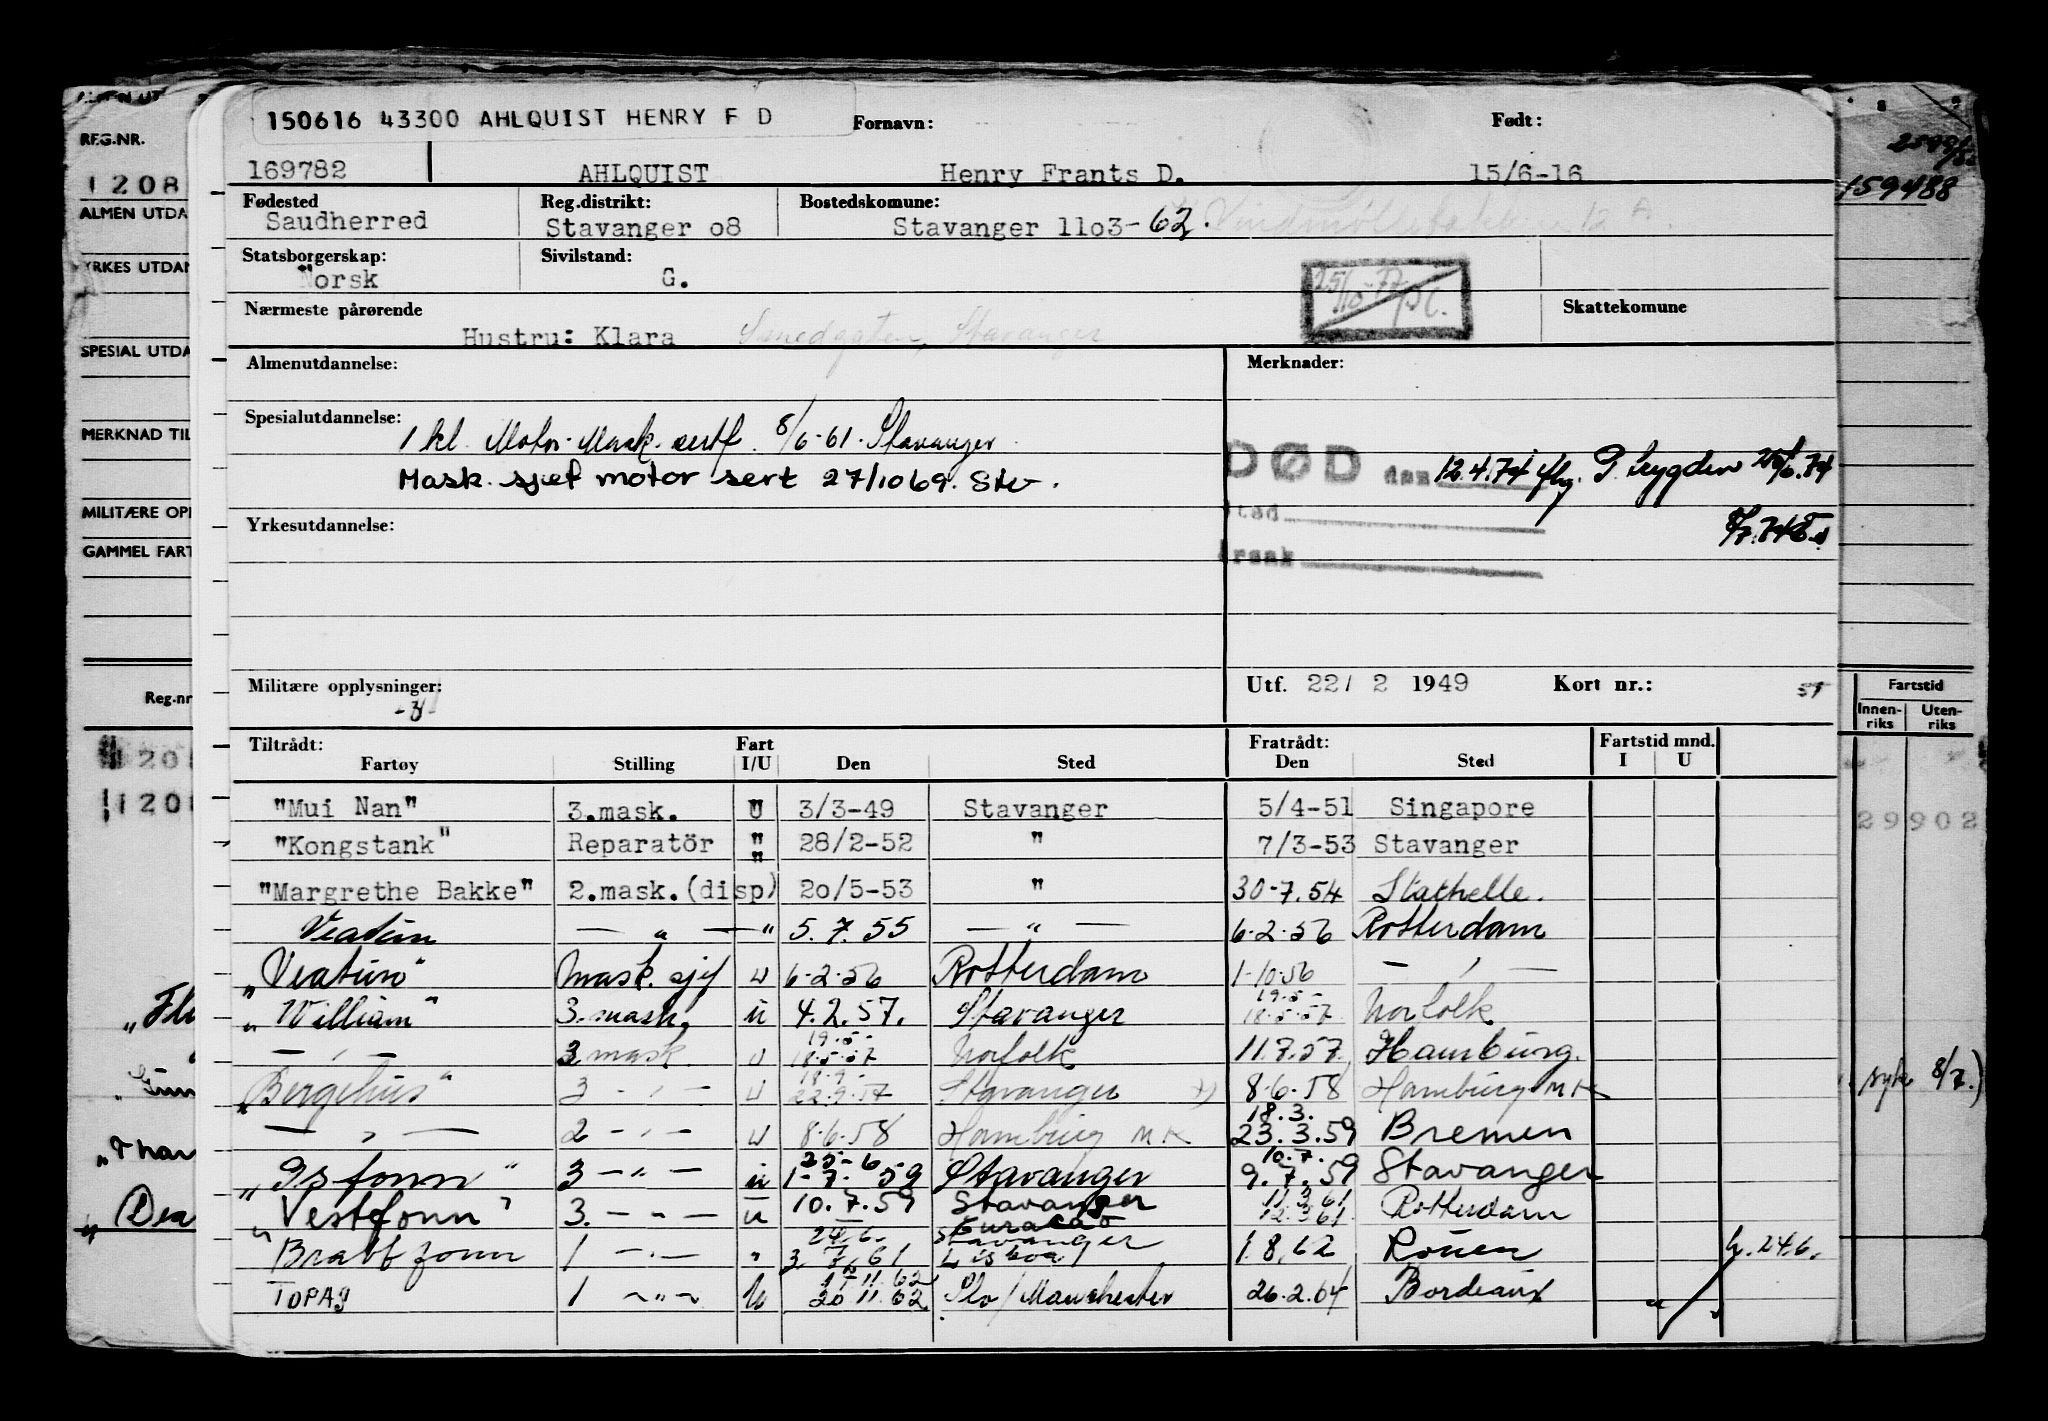 150616 43300 AHLQUIST HENRY F D
Fornavn: Født:
169782 AHLQUIST Henry Frants D. 15/6-16
Fødested Reg.distrikt: Bostedskomune:
Saudherred Stavanger o8 Stavanger 11o3-62.
Statsborgerskap: Sivilstand:
Norsk G.
Nærmeste pårørende Skattekomune
Hustru: Klara Smedgaten, Stavanger
Almenutdannelse: Merknader:
Spesialutdannelse:
1 kl. Motor-Mask. sertf. 8/6-61. Stavanger
DØD den 12.4.74
Mask. sjef motor sert 27/10 69. Stv.
Sted
Yrkesutdannelse:
Årsak
Militære opplysninger: Utf. 22/ 2 1949 Kort nr.:
Tiltrådt: Fart Fratrådt: Fartstid mnd.
Fartøy Stilling I/U Den Sted Den Sted I U
"Mui Nan" 3.mask. U 3/3-49 Stavanger 5/4-51 Singapore
"Kongstank" Reparatör " 28/2-52 " 7/3-53 Stavanger
"Margrethe Bakke" 2.mask.(disp) " 2o/5-53 " 30-7.54 Stathelle.
— " — " 5.7.55 — " — 6-2-56 Rotterdam
Mask. sjef u 6-2-56 Rotterdam 1-10-56 — " —
"William" 3.mask. u 4.2.57. Stavanger 19.5- 18.5.57 Norfolk
— " — 2 mask u 19.5- 18.5.57 Norfolk 11.7.57 Hamburg.
3 — " — u 18.9- 22.9.57 Stavanger 8-6.58 Hamburg M K
— " — 2 — " — u 8.6.58 Hamburg M K 18.3. 23.3.59 Bremen
"Isfonn" 3 — " — u 25-6 1-7.59 Stavanger 10.7. 9.7.59 Stavanger
"Vestfonn" 3. — " — u 10.7.59 Stavanger Rotterdam
Curacao
Brattfonn 1 — " — " 24.6. Stavanger 1.8.62 Rouen 24.6.
Lisboa
TOPAS 1 — " — u 20 11.62 Manchester 26.2.64 Bordeaux
REG.NR.
1208
ALMEN UTDA
YRKES UTDAN
SPESIAL UTDA
MERKNAD TIL
MILITÆRE OPP
GAMMEL FART
Reg.nr
1201
159488
Fartstid
Innen- Uten-
riks riks
29902